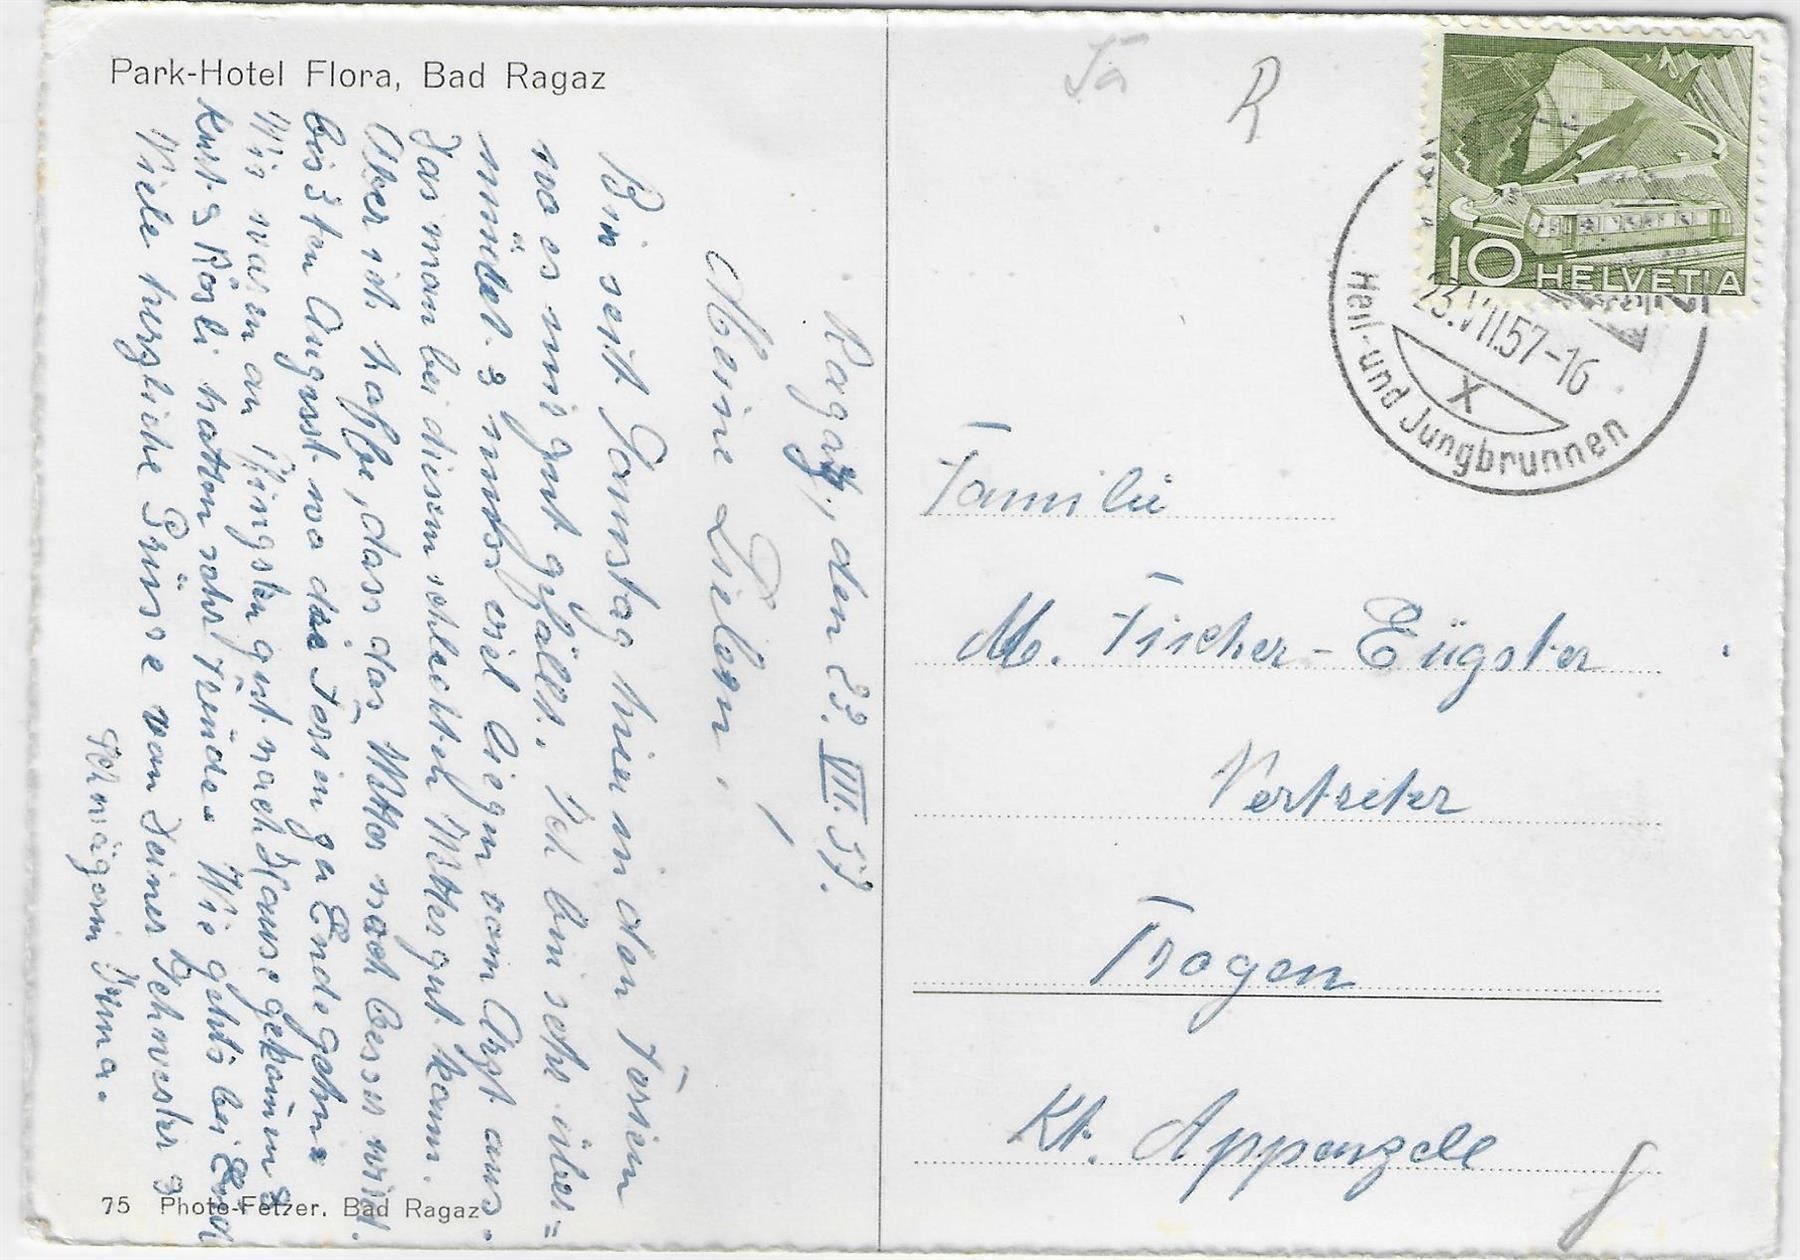 Park-Hotel Flora, Bad Ragaz
Ragaz, den 23. VII. 57.
Meine Lieben,
Bin seit Samstag hier in den Ferien
wo es mir gut gefällt. Ich bin sehr über=
müdet & muss viel liegen vom Arzt aus.
Das man bei diesem schlechten Wetter gut kann.
Aber ich hoffe, dass das Wetter noch besser wird.
bis 3ten August wo die Ferien zu Ende gehn.
Wir waren an Pfingsten gut nach Hause gekommen &
Kurt & Rösli hatten sehr Freude. Wie gehts bei Euch
Viele herzliche Grüsse von Deiner Schwester &
Schwägerin Irma.
75 Photo-Fetzer, Bad Ragaz
Tä
R
10 HELVETIA
23.VII.57-16
X
Heil- und Jungbrunnen
Familie
M. Fischer-Eugster
Vertreter
Trogen
Kt. Appenzell